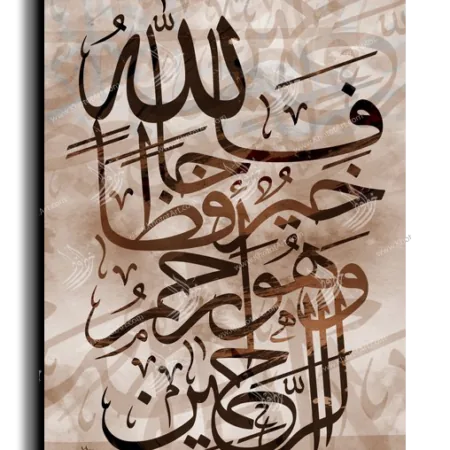 فَاللَّهُ
خَيْرٌ حَافِظًا
وَهُوَ أَرْحَمُ
الرَّاحِمِينَ